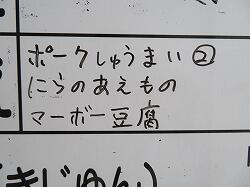 ポークしゅうまい②
にらのあえもの
マーボー豆腐
きじゅん